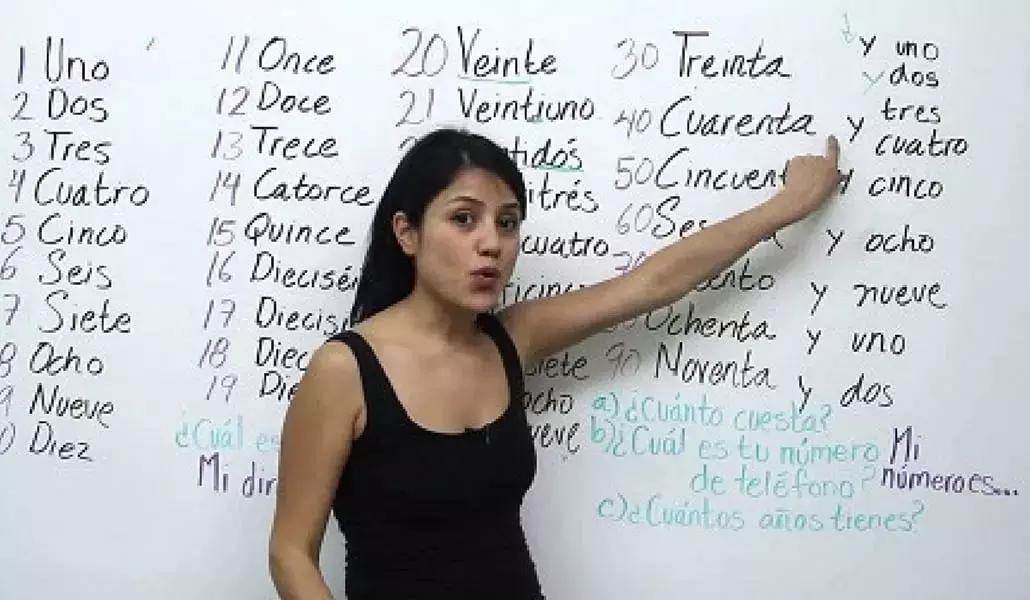 1 Uno
2 Dos
3 Tres
4 Cuatro
5 Cinco
6 Seis
7 Siete
8 Ocho
9 Nueve
0 Diez
11 Once
12 Doce
13 Trece
14 Catorce
15 Quince
16 Dieciséi
17 Diecisi
18 Diec
19 Die
¿Cuál es
Mi dir
20 Veinte
21 Veintiuno
tidós
itrés
cuatro
ticinc
siete
ocho
ueve
30 Treinta
40 Cuarenta
50 Cincuent
60 Ses
70 ento
Ochenta
90 Noventa
y uno
y dos
tres
y cuatro
y cinco
y ocho
y nueve
y uno
y dos
a) ¿Cuánto cuesta?
b) ¿Cuál es tu número
de teléfono?
Mi
número es...
c) ¿Cuántos años tienes?